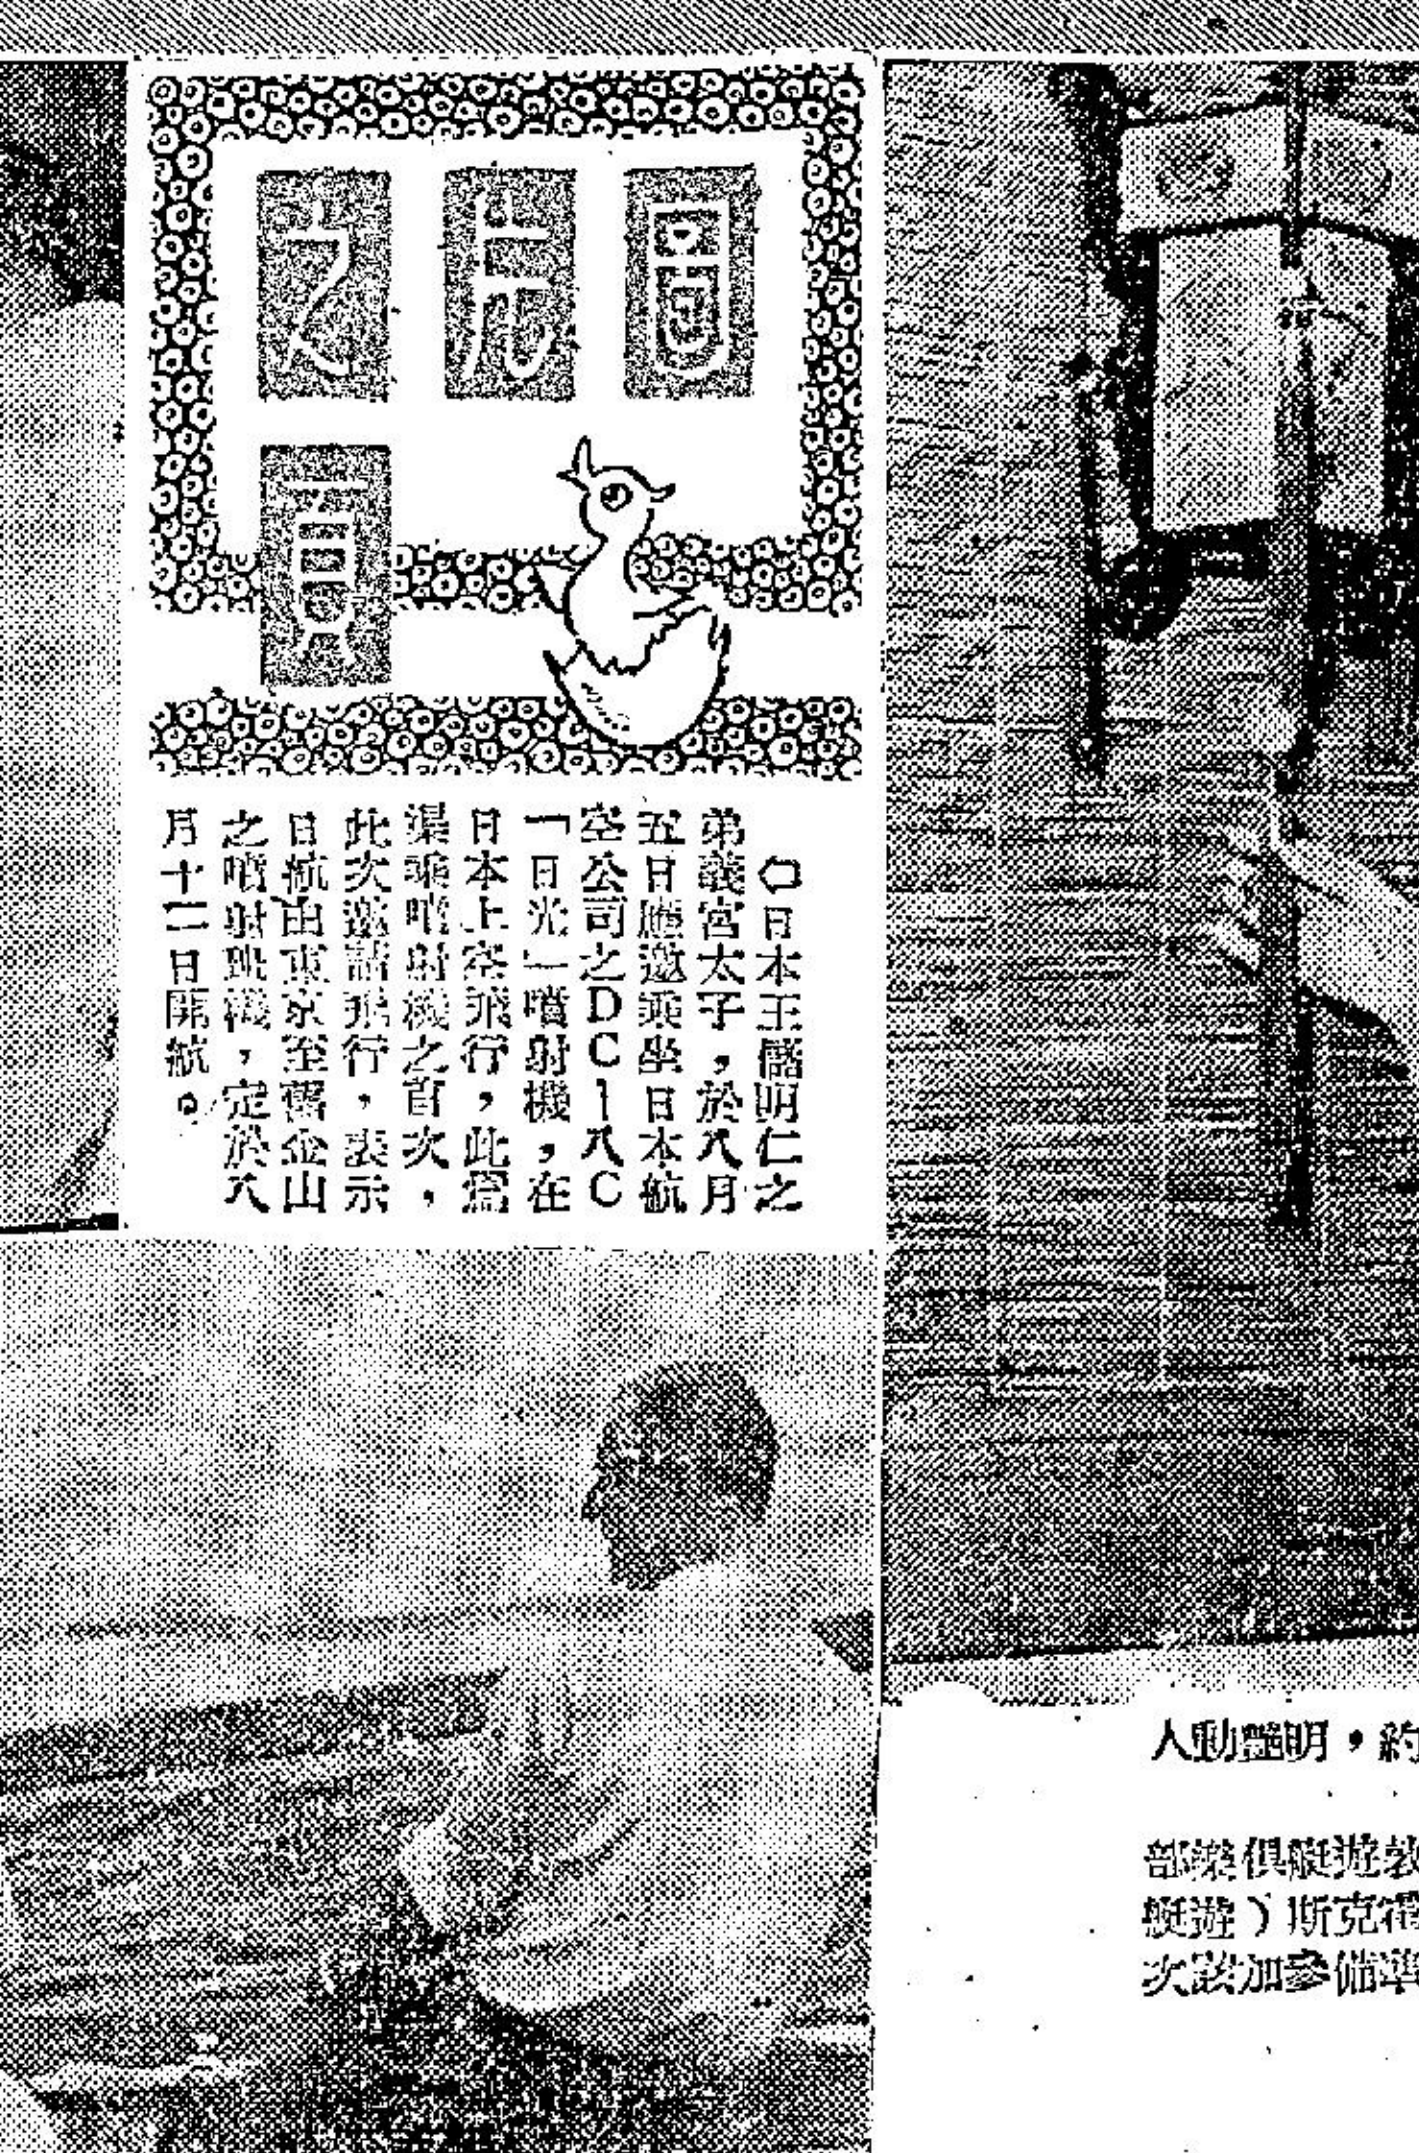 圖片之頁
⇦日本王儲明仁之
弟義宮太子，於八月
五日應邀乘坐日本航
空公司之DC－八C
「日光」噴射機，在
日本上空飛行，此為
渠乘噴射機之首次，
此次邀請飛行，表示
日航由東京至舊金山
之噴射班機，定於八
月十二日開航。
人動豔明，約
部樂俱艇遊敦
艇遊）斯克霍
次該加參備準